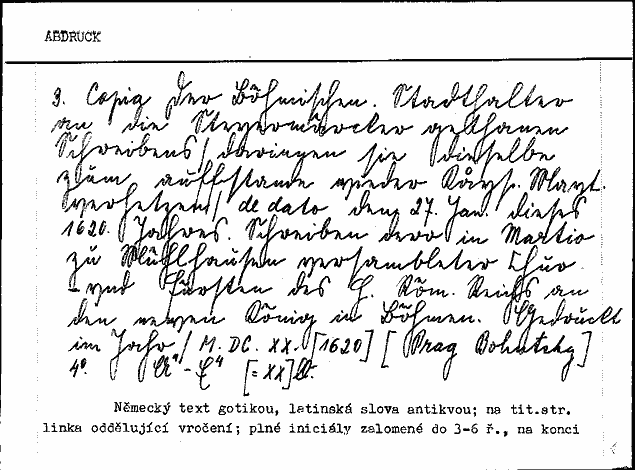 ABDRUCK
3. Copia Der Böhmischen. Stadthalter
an die Steyermärcker gethanen
Schreibens / darinnen sie dieselbe
zum auffstande wieder Käys. Mayt.
verhetzen / de dato dem 27. Jan. dieses
1620. Jahres. Schreiben derer in Martio
zu Mühlhausen versambleter Chur
-vnd Fürsten des H. Röm. Reichs an
den newen König in Böhmen. Gedruckt
im Jahr / M. DC. XX. [1620] [Prag Bohutsky]
4º. A⁴-E⁴ [=XX]
Německý text gotikou, latinská slova antikvou; na tit.str.
linka oddělující vročení; plné iniciály zalomené do 3-6 ř., na konci